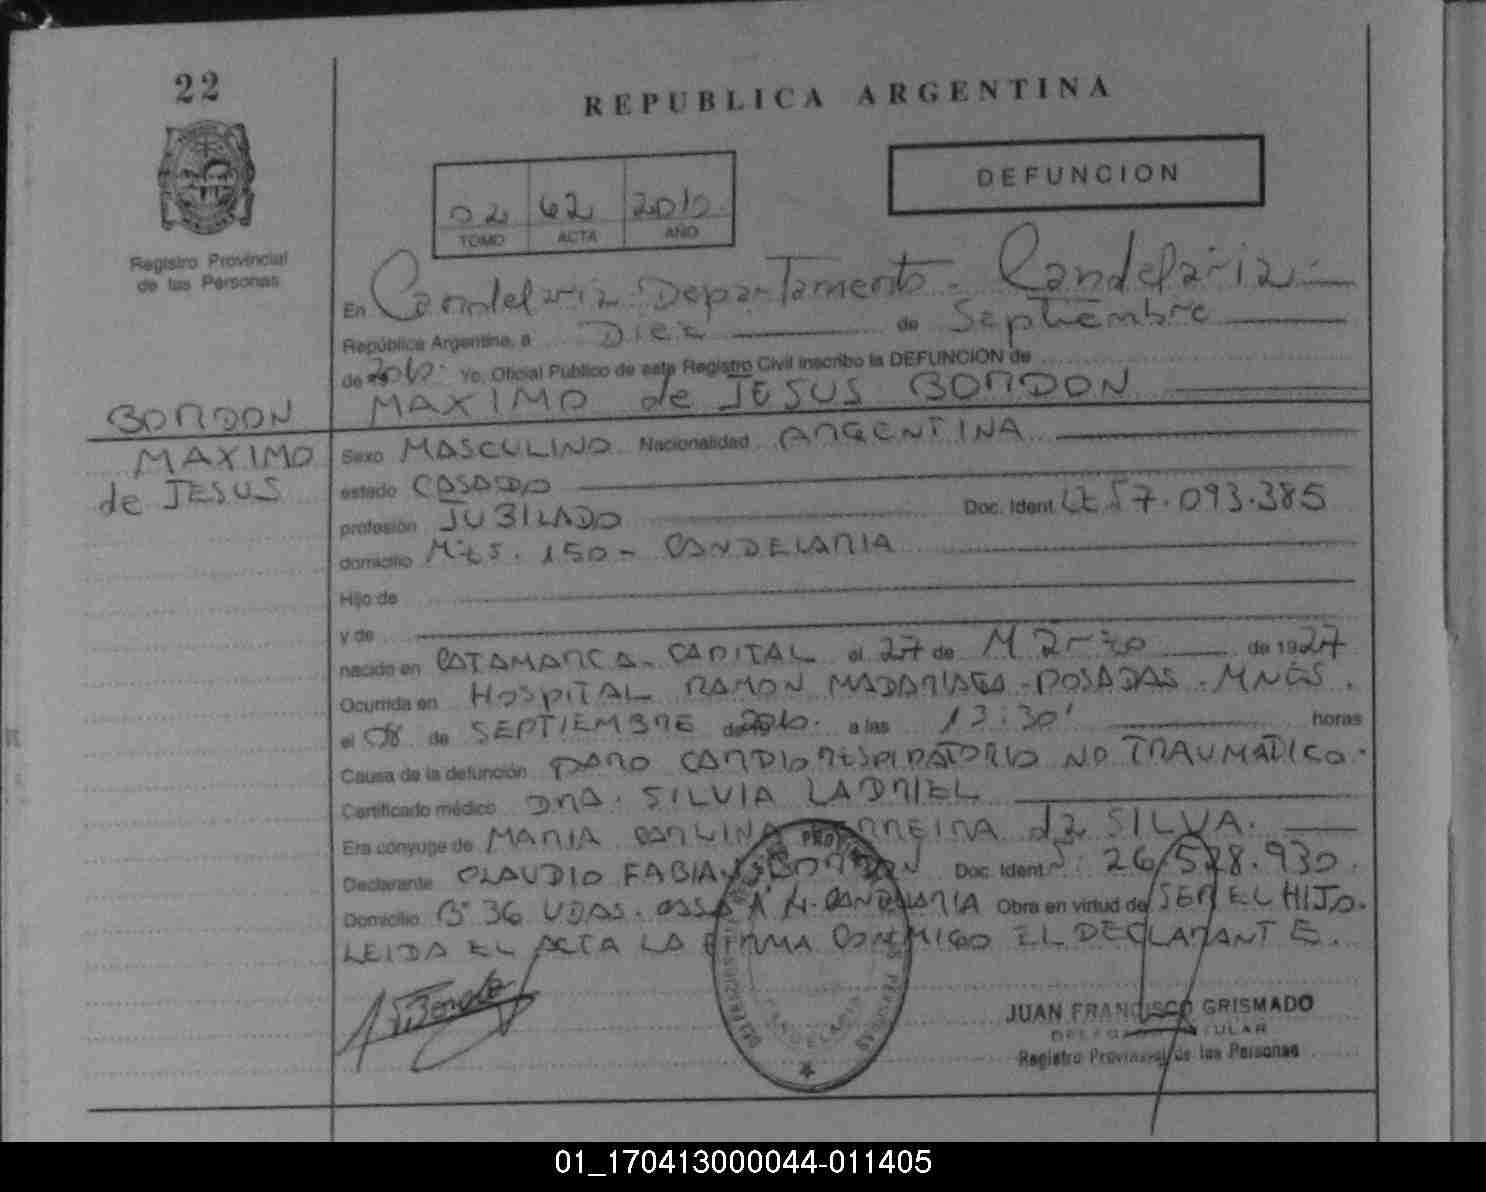 22
REPUBLICA ARGENTINA
DEFUNCION
02 62 2010
TOMO ACTA AÑO
Registro Provincial
de las Personas
En Candelaria Departamento - Candelaria
República Argentina, a Diez de Septiembre
de 2010. Yo, Oficial Público de este Registro Civil inscribo la DEFUNCION de
MAXIMO de JESUS BORDON
BORDON
MAXIMO
de JESUS
Sexo MASCULINO Nacionalidad ARGENTINA
estado CASADO
profesión JUBILADO Doc. Ident. 7.093.385
domicilio 150 - CANDELARIA
Hijo de
y de
nacido en CATAMARCA - CAPITAL el 27 de Marzo de 1927
Ocurrida en HOSPITAL RAMON MADARIAGA - POSADAS - MNES.
el 08 de SEPTIEMBRE de 2010. a las 13:30' horas
Causa de la defunción PARO CARDIORESPIRATORIO NO TRAUMATICO.
Certificado médico DRA. SILVIA LADRIEL
Era cónyuge de MARIA FERREIRA da SILVA.
Declarante CLAUDIO FABIAN BORDON Doc. Ident. 26.528.930.
Domicilio Bº 36 VDAS. CASA CANDELARIA Obra en virtud de SER EL HIJO.
LEIDA EL ACTA LA FIRMA CONMIGO EL DECLARANTE.
CANDELARIA
JUAN FRANCISCO GRISMADO
Registro Provincial de las Personas
01_170413000044-011405